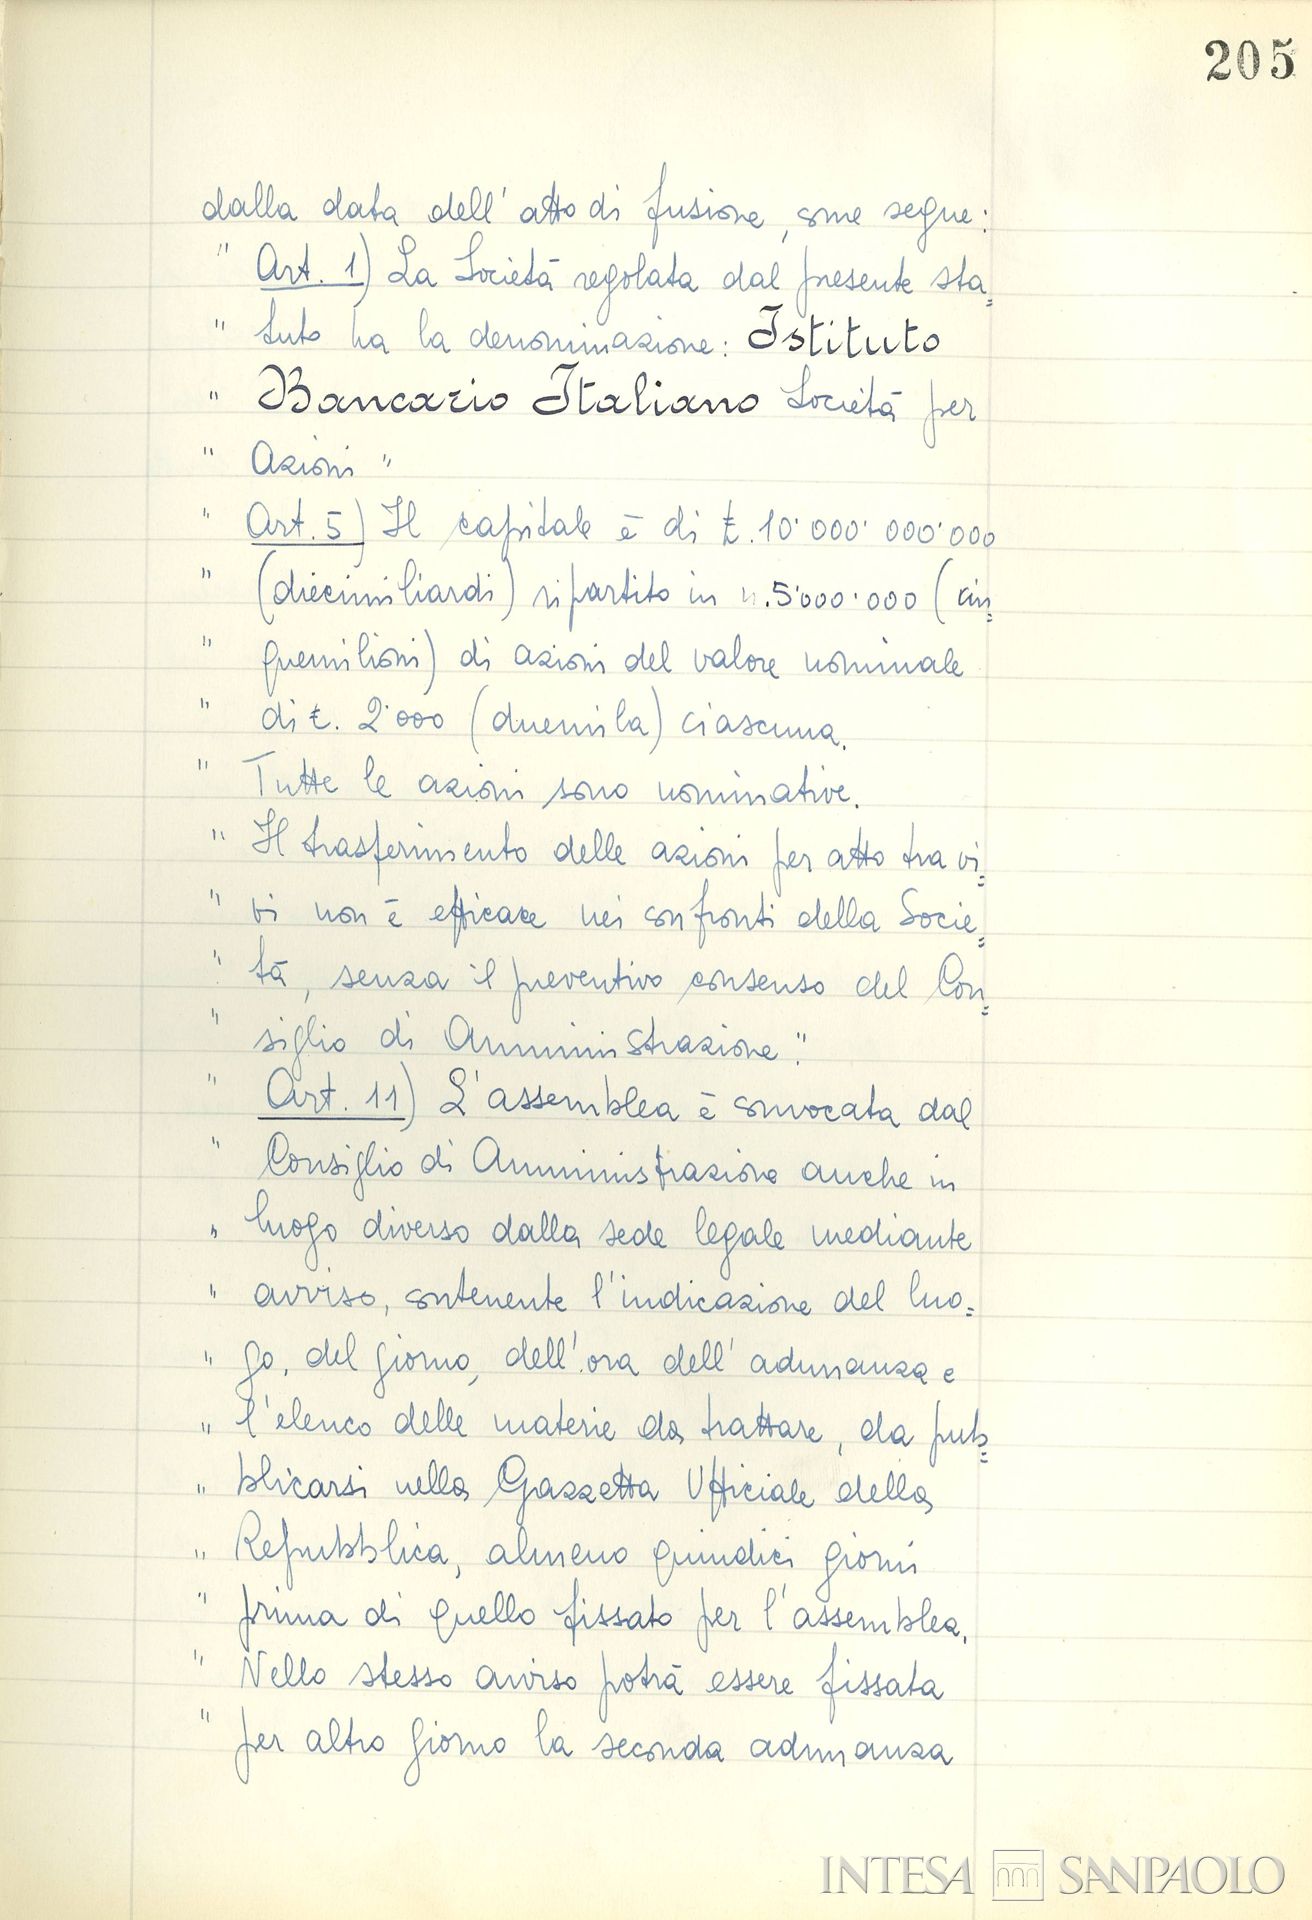 205
dalla data dell'atto di fusione, come segue:
" Art. 1) La Società regolata dal presente sta=
" tuto ha la denominazione: Istituto
" Bancario Italiano Società per
" Azioni"
" Art. 5) Il capitale è di £. 10'000'000'000
" (diecimiliardi) ripartito in n. 5'000'000 (cin=
" quemilioni) di azioni del valore nominale
" di £. 2'000 (duemila) ciascuna.
" Tutte le azioni sono nominative.
" Il trasferimento delle azioni per atto tra vi=
" vi non è efficace nei confronti della Socie=
" tà, senza il preventivo consenso del Con=
" siglio di Amministrazione."
" Art. 11) L'assemblea è convocata dal
" Consiglio di Amministrazione anche in
" luogo diverso dalla sede legale mediante
" avviso, contenente l'indicazione del luo=
" go, del giorno, dell'ora dell'adunanza e
" l'elenco delle materie da trattare, da pub=
" blicarsi nella Gazzetta Ufficiale della
" Repubblica, almeno quindici giorni
" prima di quello fissato per l'assemblea.
" Nello stesso avviso potrà essere fissata
" per altro giorno la seconda adunanza
INTESA SANPAOLO